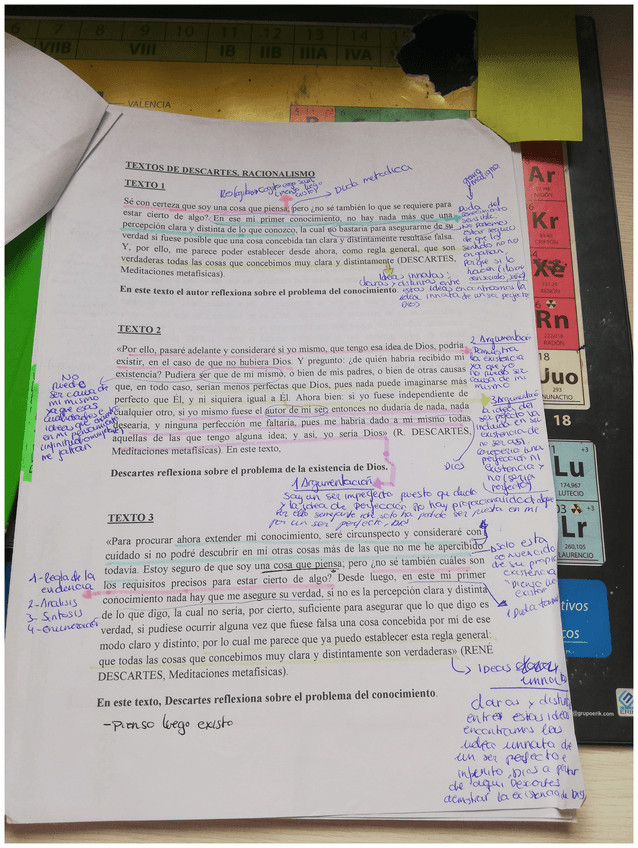 VIIB
VIII
IB
IIB
IIIA
IVA
VALENCIA
TEXTOS DE DESCARTES, RACIONALISMO
TEXTO 1
Duda metodica
Sé con certeza que soy una cosa que piensa; pero ¿no sé también lo que se requiere para
estar cierto de algo? En ese mi primer conocimiento, no hay nada más que una
percepción clara y distinta de lo que conozco, la cual no bastaría para asegurarme de su
verdad si fuese posible que una cosa concebida tan clara y distintamente resultase falsa.
Y, por ello, me parece poder establecer desde ahora, como regla general, que son
verdaderas todas las cosas que concebimos muy clara y distintamente (DESCARTES,
Meditaciones metafísicas).
En este texto el autor reflexiona sobre el problema del conocimiento.
Ideas innatas:
claras y distintas entre
estas ideas encontramos la
idea innata de un ser perfecto
Dios
genio
maligno
TEXTO 2
«Por ello, pasaré adelante y consideraré si yo mismo, que tengo esa idea de Dios, podría
existir, en el caso de que no hubiera Dios. Y pregunto: ¿de quién habría recibido mi
existencia? Pudiera ser que de mí mismo, o bien de mis padres, o bien de otras causas
que, en todo caso, serían menos perfectas que Dios, pues nada puede imaginarse más
perfecto que Él, y ni siquiera igual a Él. Ahora bien: si yo fuese independiente de
cualquier otro, si yo mismo fuese el autor de mi ser, entonces no dudaría de nada, nada
desearía, y ninguna perfección me faltaría, pues me habría dado a mí mismo todas
aquellas de las que tengo alguna idea; y así, yo sería Dios» (R. DESCARTES,
Meditaciones metafísicas). En este texto,
Descartes reflexiona sobre el problema de la existencia de Dios.
No
puedo
ser causa de
mi mismo
ya que esas
me faltan
2 Argumentación
Demuestra
la existencia
ya que yo
no puedo ser
causa de mi
mismo
3 Argumentación
la idea del
ser perfecto va
incluida en su
existencia de
no ser así
carecería una
perfección ni
existencia y
no sería
perfecto
DIOS
1 Argumentación
Soy un ser imperfecto puesto que dudo
TEXTO 3
«Para procurar ahora extender mi conocimiento, seré circunspecto y consideraré con
cuidado si no podré descubrir en mí otras cosas más de las que no me he apercibido
todavía. Estoy seguro de que soy una cosa que piensa; pero ¿no sé también cuáles son
los requisitos precisos para estar cierto de algo? Desde luego, en este mi primer
conocimiento nada hay que me asegure su verdad, si no es la percepción clara y distinta
de lo que digo, la cual no sería, por cierto, suficiente para asegurar que lo que digo es
verdad, si pudiese ocurrir alguna vez que fuese falsa una cosa concebida por mí de ese
modo claro y distinto; por lo cual me parece que ya puedo establecer esta regla general:
que todas las cosas que concebimos muy clara y distintamente son verdaderas» (RENÉ
DESCARTES, Meditaciones metafísicas).
En este texto, Descartes reflexiona sobre el problema del conocimiento.
-Pienso luego existo
1-Regla de la
evidencia
2-Análisis
3-Sintesis
4-Enumeración
Solo esta
convencido
de su propia
existencia
"Pienso luego
existo"
Ideas
innatas
claras y distintas
entre estas ideas
encontramos la
idea innata de
un ser perfecto e
infinito, Dios a partir
de aqui Descartes
demostrar la existencia de Dios
Ar
Kr
Xe
Rn
18
Uuo
18
Lu
174,967
LUTECIO
Lr
260,105
LAURENCIO
@grupoerik.com